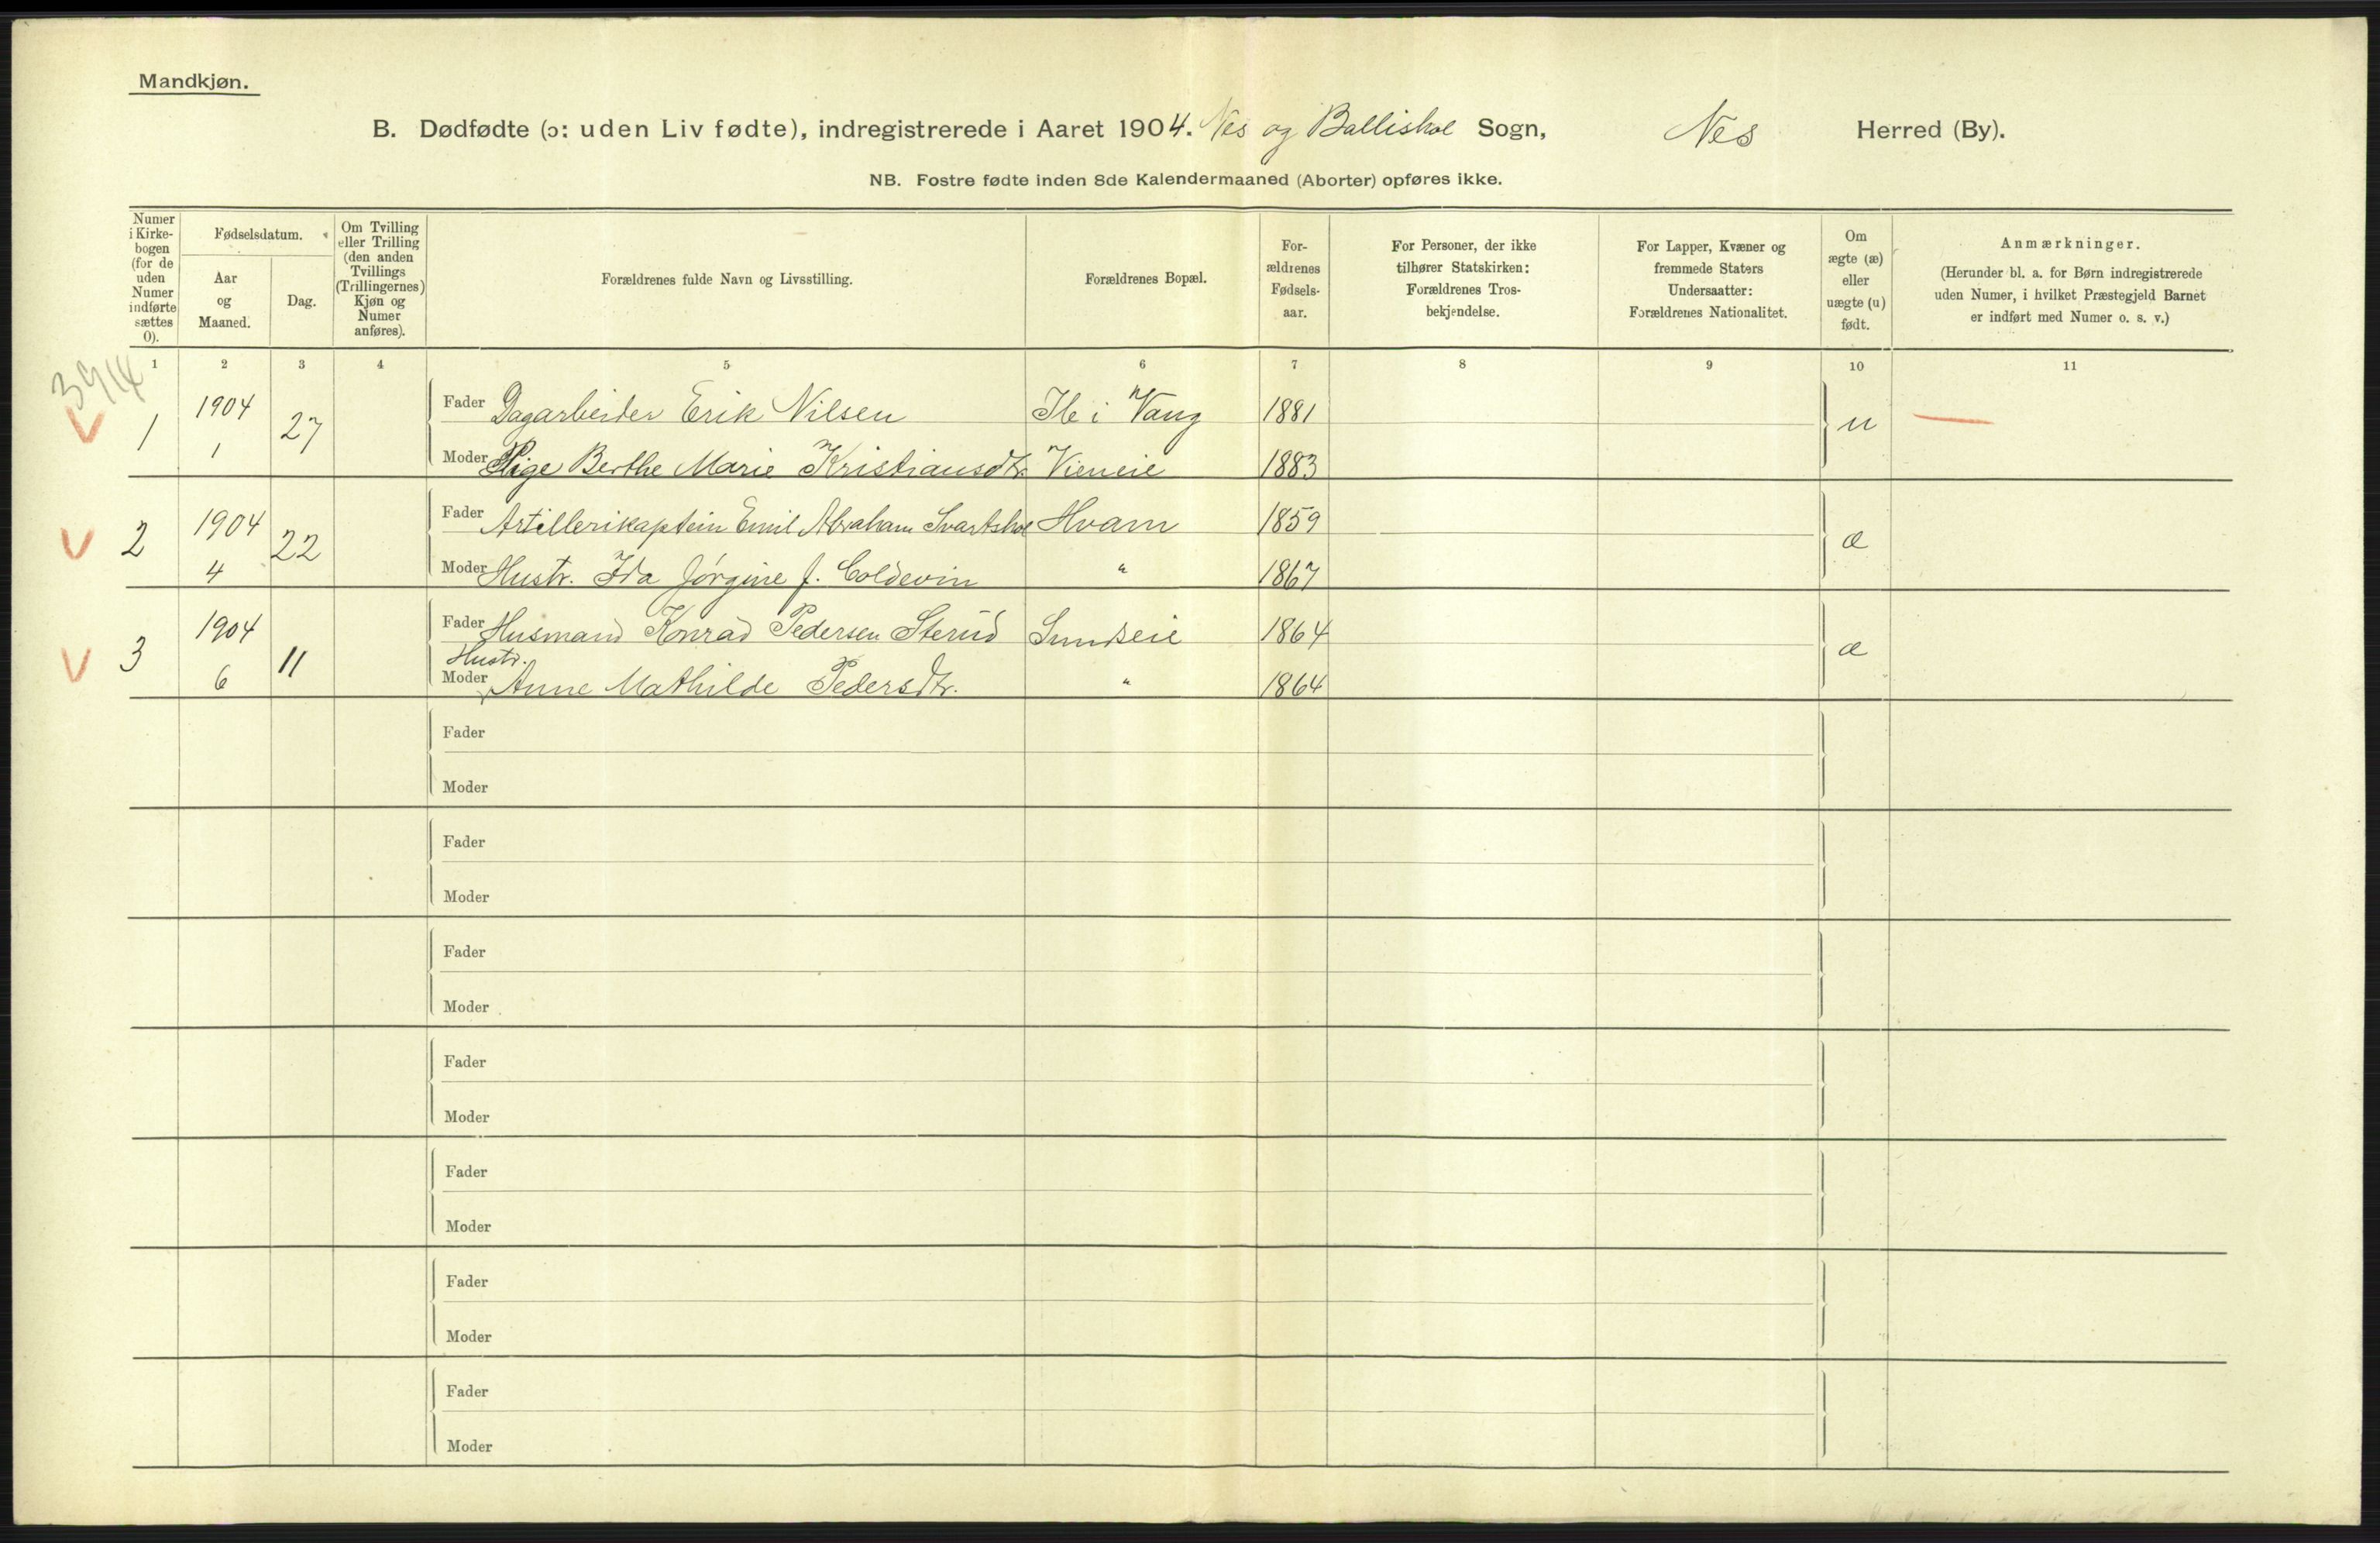 Mandkjøn.
B. Dødfødte (ɔ: uden Liv fødte), indregistrerede i Aaret 1904. Nes og Balliskol Sogn, Nes Herred (By).
NB. Fostre fødte inden 8de Kalendermaaned (Aborter) opføres ikke.
Numer
i Kirke-
bogen
(for de
uden
Numer
indførte
sættes
0).
Fødselsdatum.
Aar
og
Maaned.
Dag.
Om Tvilling
eller Trilling
(den anden
Tvillings
(Trillingernes)
Kjøn og
Numer
anføres).
Forældrenes fulde Navn og Livsstilling.
Forældrenes Bopæl.
For-
ældrenes
Fødsels-
aar.
For Personer, der ikke
tilhører Statskirken:
Forældrenes Tros-
bekjendelse.
For Lapper, Kvæner og
fremmede Staters
Undersaatter:
Forældrenes Nationalitet.
Om
ægte (æ)
eller
uægte (u)
født.
Anmærkninger.
(Herunder bl. a. for Børn indregistrerede
uden Numer, i hvilket Præstegjeld Barnet
er indført med Numer o. s. v.)
1 2 3 4 5 6 7 8 9 10 11
3914
1 1904 1 27
Fader Dagarbeider Erik Nilsen Ile i Vang 1881 u
Moder Pige Berthe Marie Kristiansdtr. Vieneie 1883
2 1904 4 22
Fader Artillerikaptein Emil Abraham Svartskol Hvam 1859 æ
Moder Hustr. Ida Jørgine f. Coldevin " 1867
3 1904 6 11
Fader Husmand Konrad Pedersen Sterud Sundseie 1864 æ
Hustr.
Moder Anne Mathilde Pedersdtr. " 1864
Fader
Moder
Fader
Moder
Fader
Moder
Fader
Moder
Fader
Moder
Fader
Moder
Fader
Moder